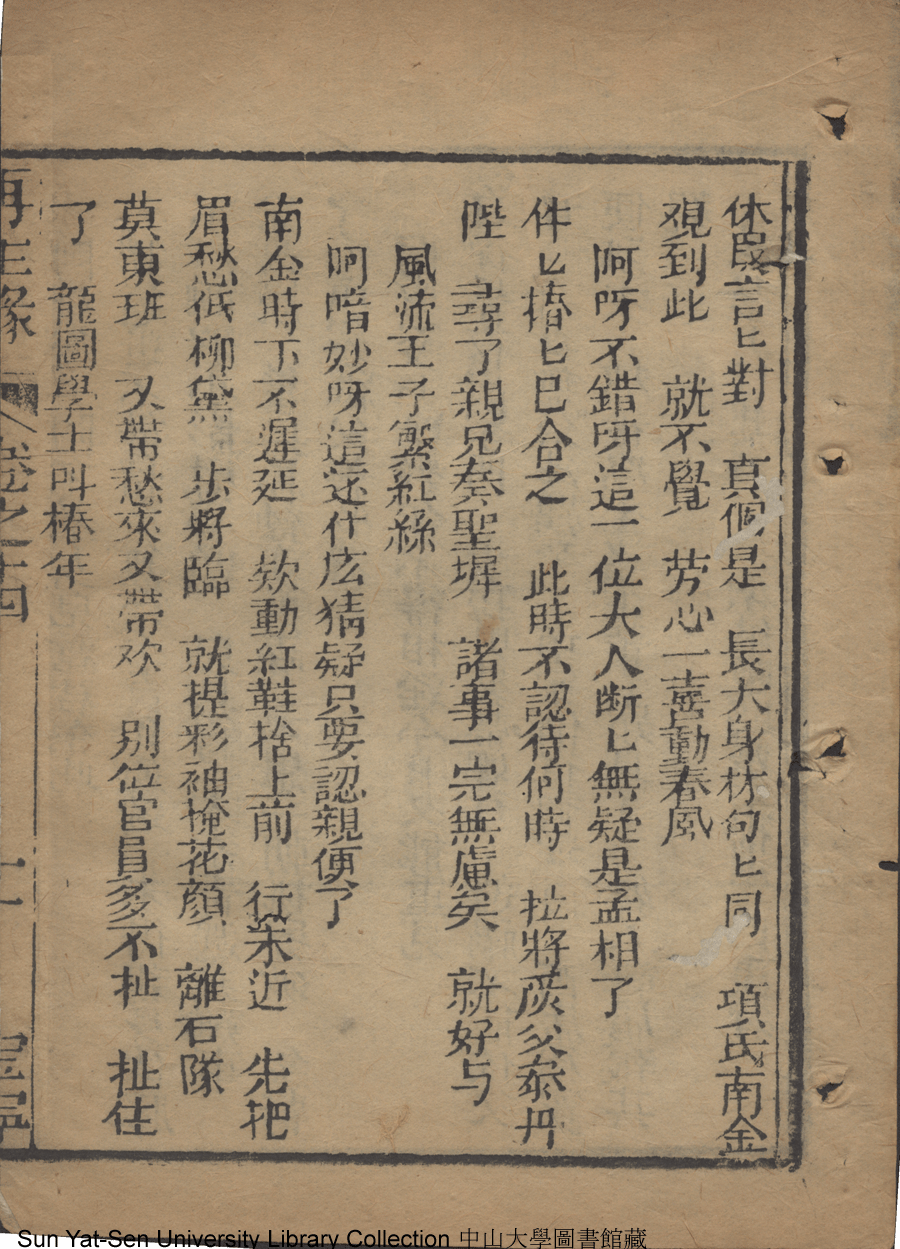 休畏言匕對　真個是　長大身材句匕同　項氏南金
覌到此　就不覺　芳心一喜動春風
呵呀不錯呀這一位大人断匕無疑是孟相了
件匕捲匕巳合之　此時不認待何時　拉將䒳父泰丹
陛　尋了親兄奏聖墀　諸事一完無慮矣　就好与
風流王子繫紅絲
呵唷妙呀這还什庅猜疑只要認親便了
南金時下不遲延　欸動紅鞋搶上前　行来近　先把
眉愁低柳黛　步將臨　就提彩袖掩花顏　離石隊
莫東班　又帶愁來又帶欢　别位官員多不扯　扯住
了　龍圖學士叫椿年
再生緣　卷之十四　十一　宝寧
Sun Yat-Sen University Library Collection 中山大學圖書館藏